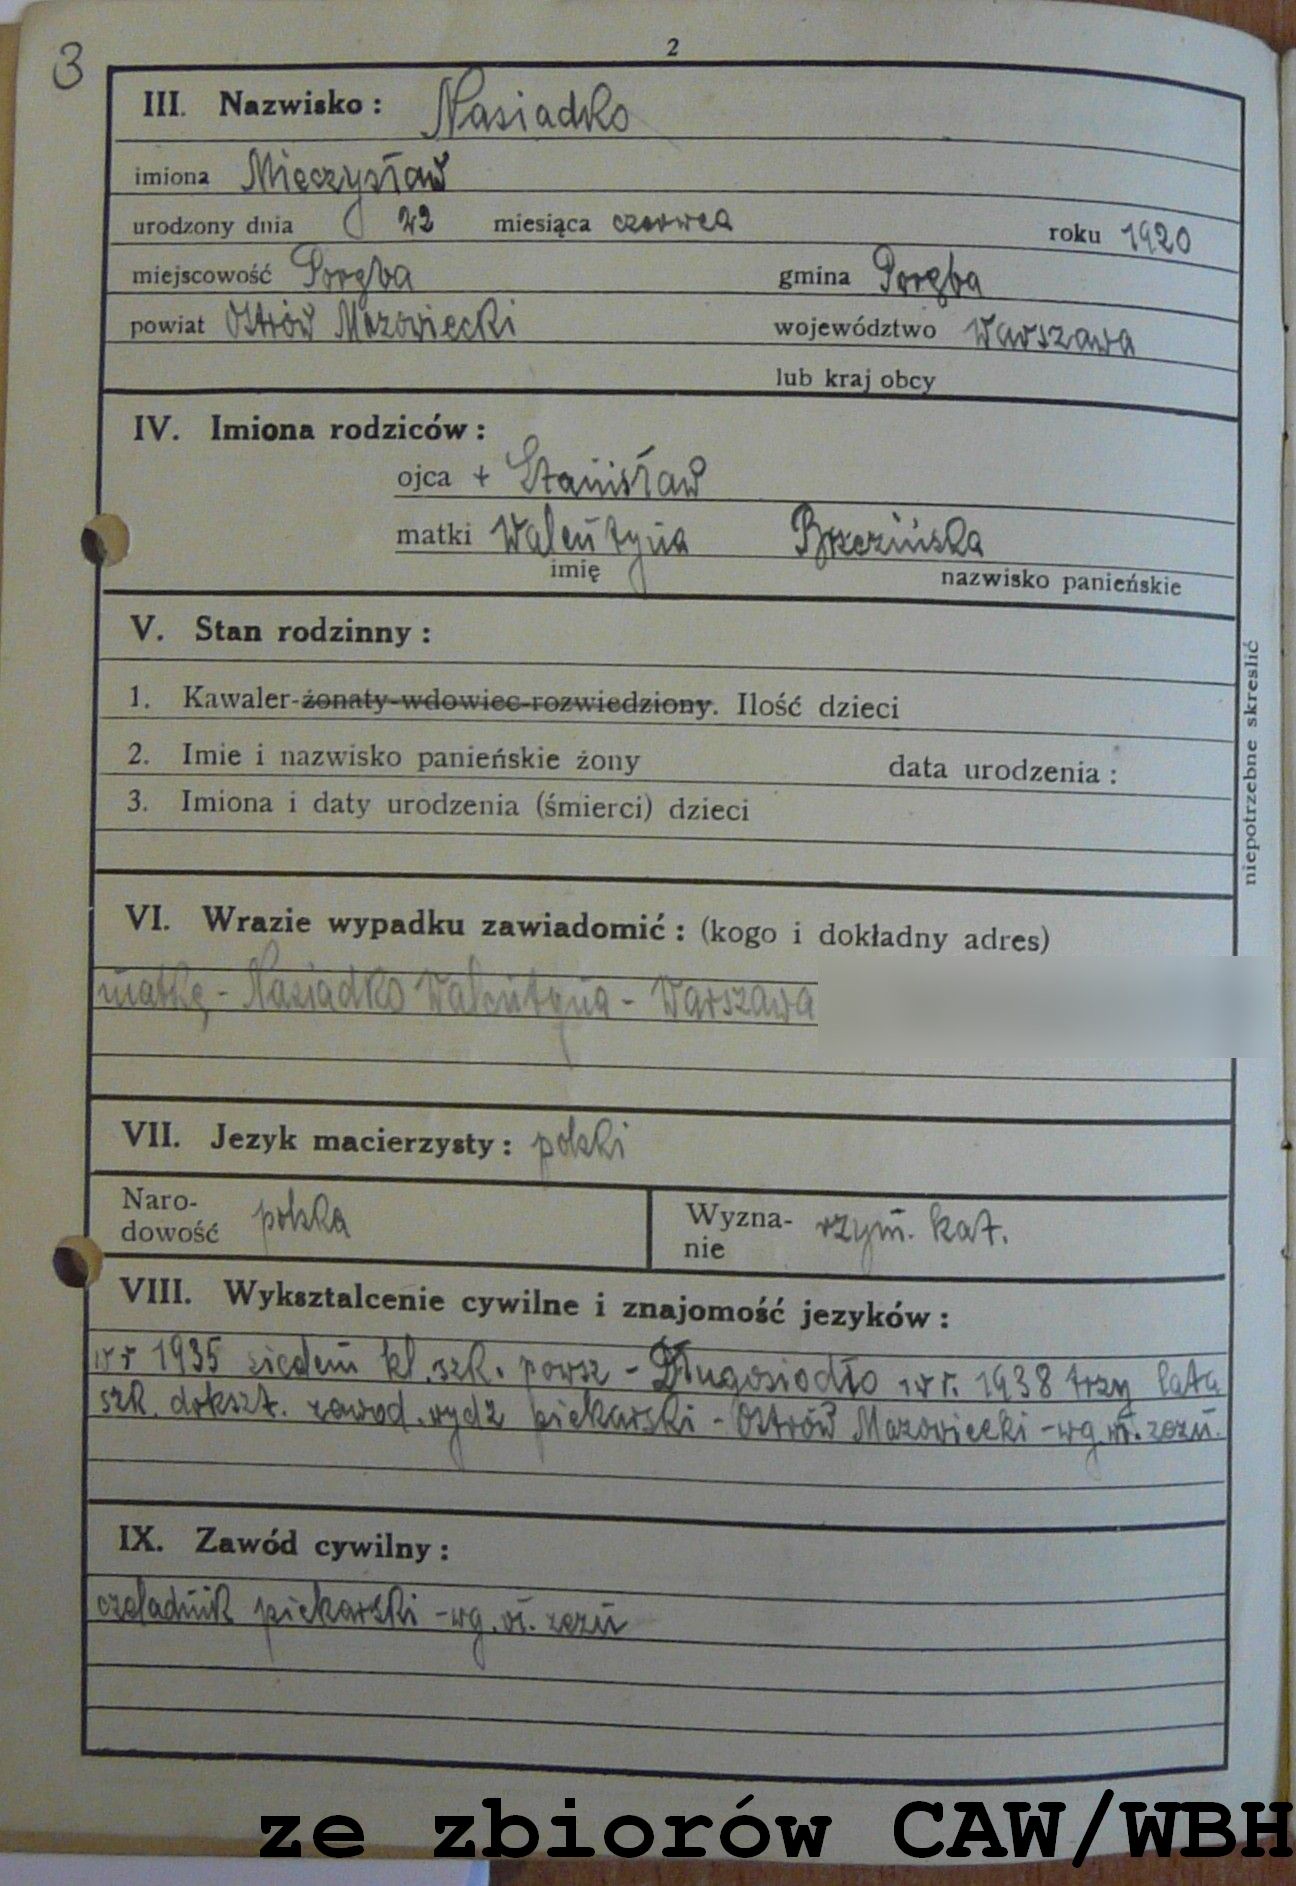 3
2
III. Nazwisko: Nasiadko
imiona Mieczysław
urodzony dnia 22 miesiąca czerwca roku 1920
miejscowość Poręba gmina Poręba
powiat Ostrów Mazowiecki województwo Warszawa
lub kraj obcy
IV. Imiona rodziców:
ojca + Stanisław
matki Walentyna Brzezińska
imię nazwisko panieńskie
V. Stan rodzinny:
1. Kawaler-żonaty-wdowiec-rozwiedziony. Ilość dzieci
2. Imie i nazwisko panieńskie żony data urodzenia:
3. Imiona i daty urodzenia (śmierci) dzieci
niepotrzebne skreslić
VI. Wrazie wypadku zawiadomić: (kogo i dokładny adres)
matkę - Nasiadko Walentyna - Warszawa
VII. Jezyk macierzysty: polski
Naro-
dowość polska
Wyzna-
nie rzym. kat.
VIII. Wyksztalcenie cywilne i znajomość jezyków:
w r 1935 siedem kl. szk. powsz - Długosiodło w r. 1938 trzy lata
szk. dokszt. zawod. wydz piekarski - Ostrów Mazowiecki - wg. wł. zezn.
IX. Zawód cywilny:
czeladnik piekarski - wg. wł. zezn
ze zbiorów CAW/WBH